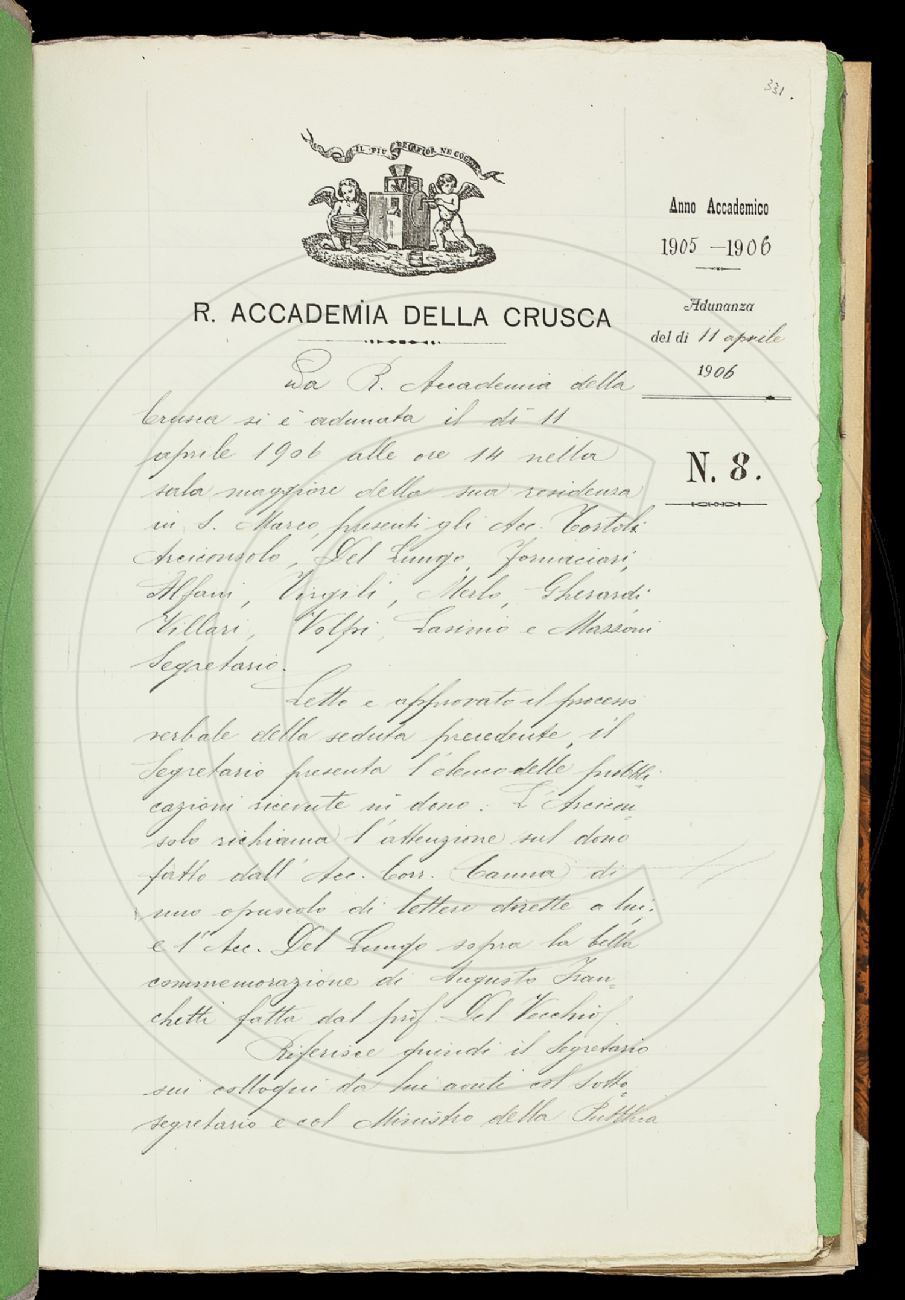 331.
IL PIÙ BEL FIOR NE COGLIE
Anno Accademico
1905 — 1906
Adunanza
del dì 11 aprile
1906
N. 8.
R. ACCADEMIA DELLA CRUSCA
La R. Accademia della
Crusca si è adunata il dì 11
aprile 1906 alle ore 14 nella
sala maggiore della sua residenza
in S. Marco, presenti gli Acc. Tortoli
Arciconsolo, Del Lungo, Fornaciari,
Alfani, Virgili, Merlo, Gherardi
Villari, Volpi, Lasinio e Mazzoni
Segretario.
Letto e approvato il processo
verbale della seduta precedente, il
Segretario presenta l'elenco delle pubbli-
cazioni ricevute in dono. L'Arcicon-
solo richiama l'attenzione sul dono
fatto dall'Acc. Corr. Canna di
uno opuscolo di lettere dirette a lui,
e l'Acc. Del Lungo sopra la bella
commemorazione di Augusto Fran-
chetti fatta dal prof. Del Vecchio.
Riferisce quindi il Segretario
sui colloqui da lui avuti col Sotto
segretario e col Ministro della Pubblica